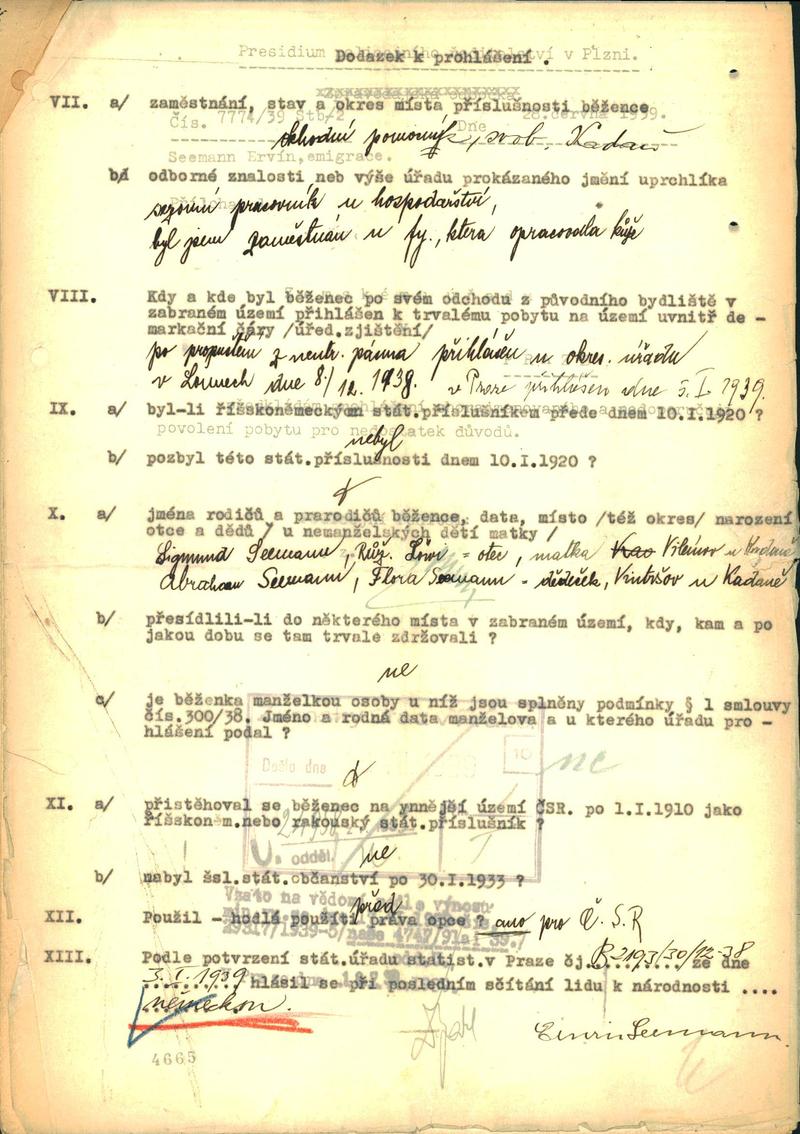 Presidium policejního ředitelství v Plzni.
Dodazek k prohlášení .
VII. a/ zaměstnání, stav a okres místa příslušnosti běžence
Čís. 7774/39 Stb/2 Dne 28.června 1939.
obchodní pomocník, svob. Kadaň
Seemann Ervín,emigrace.
b/ odborné znalosti neb výše úřadu prokázaného jmění uprchlíka
sezonní pracovník u hospodařství,
byl jsem zaměstnán u fy., ktera opracovala kůže
VIII. Kdy a kde byl běženec po svém odchodu z původního bydliště v
zabraném území přihlášen k trvalému pobytu na území uvnitř de -
markační čáry /úřed.zjištění/
po propuštění z neutr. pásma přihlášen u okres. úřadu
v Lounech dne 8./12. 1938. v Praze přihlášen dne 5. I. 1939.
IX. a/ byl-li říšskoněmeckým stát.příslušníkem přede dnem 10.I.1920 ?
povolení pobytu pro nedostatek důvodů.
nebyl
b/ pozbyl této stát.příslušnosti dnem 10.I.1920 ?
X. a/ jména rodičů a prarodičů běžence, data, místo /též okres/ narození
otce a dědů / u nemanželských dětí matky /
Sigmund Seemann, Růž. Löwi = otec, matka Vilémov u Kadaně
Abraham Seemann, Flora Seemann - dědeček, Vintířov u Kadaně
b/ přesídlili-li do některého místa v zabraném území, kdy, kam a po
jakou dobu se tam trvale zdržovali ?
ne
c/ je běženka manželkou osoby u níž jsou splněny podmínky § 1 smlouvy
čís.300/38. Jméno a rodná data manželova a u kterého úřadu pro -
hlášení podal ?
10
Došlo dne
ne
XI. a/ přistěhoval se běženec na ynnější území ČSR. po 1.I.1910 jako
říšskoněm.nebo rakouský stát.příslušník ?
ne
V. odděl.
b/ nabyl šsl.stát.občanství po 30.I.1933 ?
Vzato na vědomí dle výnosu
před
XII. Použil - hodlá použíti práva opce ? ano pro Č. S. R
XIII. Podle potvrzení stát.úřadu statist.v Praze čj. R 2193/30/12-38 ze dne
3. I. 1939 hlásil se při posledním sčítání lidu k národnosti ....
německou.
Ervin Seemann.
4665